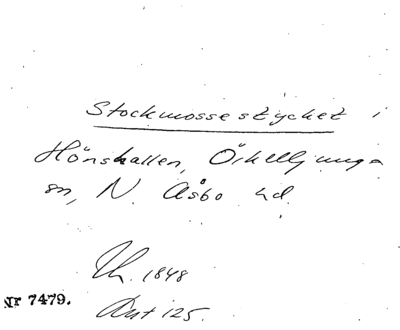 Stockmossestycket i
Hönshallen, Örkelljunga
sn, N. Åsbo hd.
Uh. 1848
Nr 7479.
Ant 125.